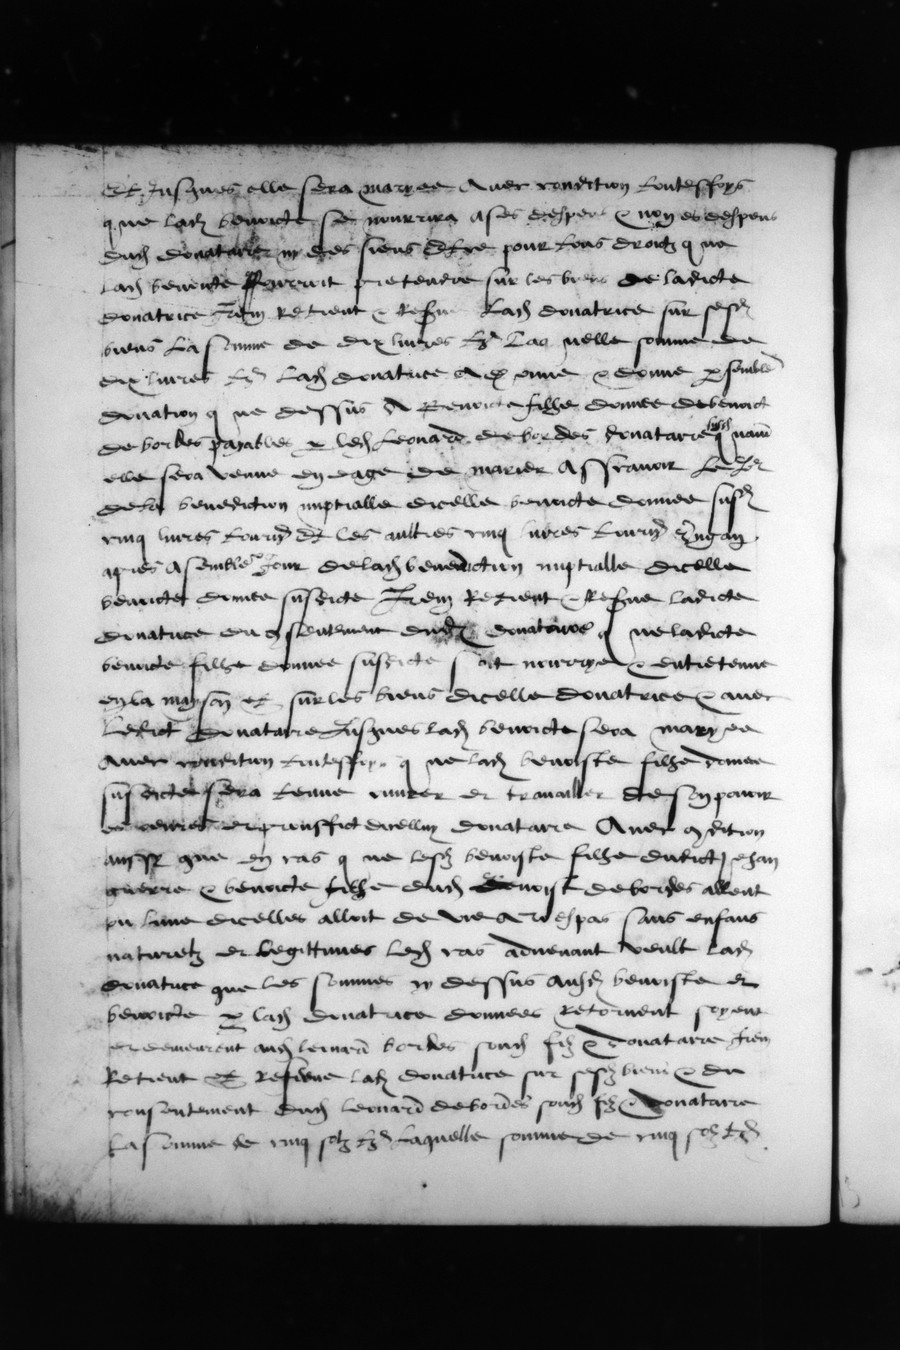 Et Jusques elle sera maryee Avec condition toutesffoys
que lad benoicte se nourrira a ses despens & non es despens
dud donataire ny des siens Et ce pour tous droictz que
lad benoicte pourroit pretendre sur les biens de ladicte
donatrice Item Retient & Reserve Lad donatrice sur sesd
biens La somme de dix livres tz Laquelle somme de
dix livres tz Lad donatrice a donne & donne par semblable
donation que dessus A Benoicte filhe donnee de benoict
de bordes payables par led Leonard de bordes donataire quant
elle sera venue en eage de marier Assavoir le Jor
de la benediction nuptialle dicelle benoicte donnee susd
cinq livres tourn Et les aultres cinq livres tourn ung an
apres a semblable Jour de lad benediction nuptialle dicelle
benoicte donnee susdicte Item Retient & Reserve ladicte
donatrice du consentement dud donataire que ladicte
benoicte filhe donnee susdicte soit nourrye & entretenue
en la mayson et sur les biens dicelle donatrice & avec
Ledict donataire Jusques lad benoicte sera maryee
Avec condition toutesffoys que lad benoiste filhe donnee
susdicte sera tenue et travailler de son pouvoir
et prouffict dicelluy donataire Avec condition
aussi que en cas que lesd benoiste filhe dudict Jehan
guerre & benoicte filhe dud benoist de bordes allent
ou lune dicelles alloit de vie a trespas sans enfans
naturelz et legittimes led cas advenant veult lad
donatrice que les sommes cy dessus ausd benoiste et
benoicte par lad donatrice donnees retornent soyent
et demeurent aud leonard bordes sond filz & donataire Item
Retient Et Reserve lad donatrice sur sesd biens & du
consentement dud Leonard de bordes sond filz & donataire
La somme de cinq solz tz Laquelle somme de cinq solz tz